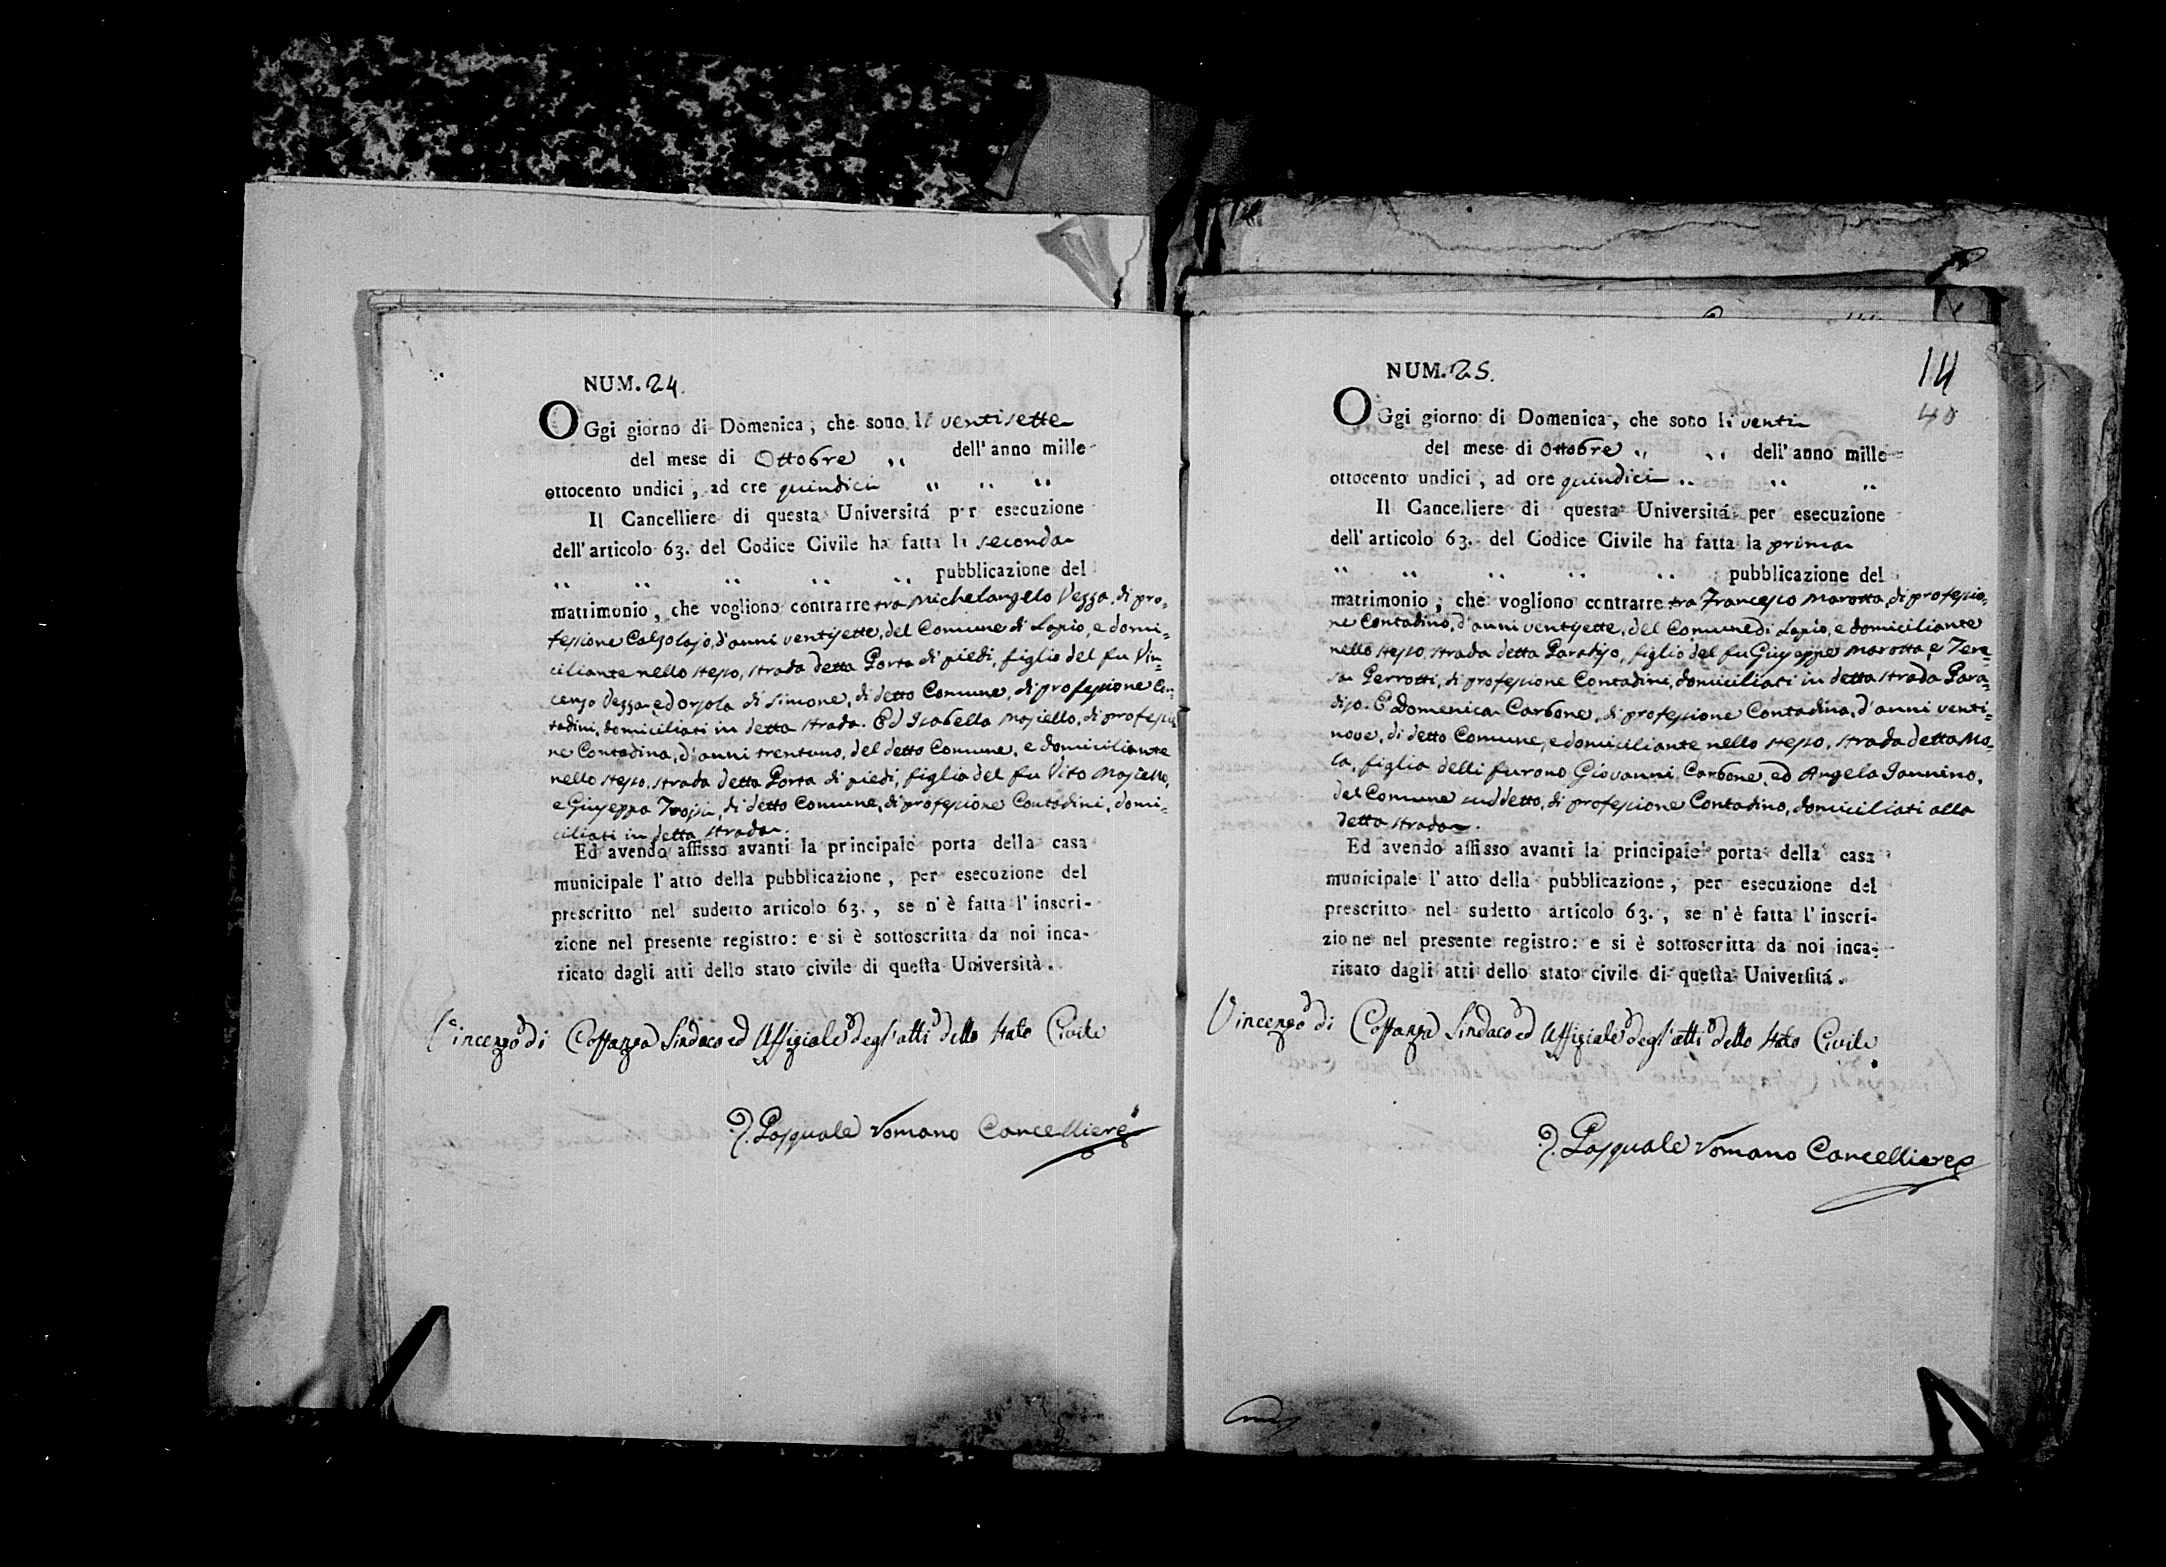 NUM. 24.
OGgi giorno di Domenica, che sono li ventisette
del mese di Ottobre ,, dell' anno mille-
ottocento undici, ad ore quindici ,, ,, ,,
Il Cancelliere di questa Universitá per esecuzione
dell' articolo 63. del Codice Civile ha fatta la seconda
,, ,, ,, ,, ,, pubblicazione del
matrimonio, che vogliono contrarre tra Michelangelo Vezza, di pro=
fessione Calzolajo, d'anni ventisette, del Comune di Lapio, e domi=
ciliante nello stesso, strada detta Porta di piedi, figlio del fu Vin=
cenzo Vezza ed Orsola di Simone, di detto Comune, di professione Con=
tadini, domiciliati in detta strada. Ed Isabella Masiello, di professio
ne Contadina, d'anni trentuno, del detto Comune, e domiciliante
nello stesso, strada detta Porta di piedi, figlia del fu Vito Masiello,
e Giuseppa, di detto Comune, di professione Contadini, domi=
ciliati in detta strada.
Ed avendo affisso avanti la principale porta della casa
municipale l' atto della pubblicazione, per esecuzione del
prescritto nel sudetto articolo 63., se n' è fatta l' inscri-
zione nel presente registro: e si è sottoscritta da noi inca-
ricato dagli atti dello stato civile di questa Università.
Vincenzo di Costanza Sindaco ed Uffiziale degl'atti dello Stato Civile
D. Pasquale Romano Cancelliere
NUM. 25.
14
40
OGgi giorno di Domenica, che sono li venti
del mese di Ottobre ,, ,, dell' anno mille-
ottocento undici, ad ore quindici ,, ,, ,,
Il Cancelliere di questa Universitá per esecuzione
dell' articolo 63. del Codice Civile ha fatta la prima
,, ,, ,, ,, ,, pubblicazione del
matrimonio, che vogliono contrarre tra Francesco Marotta, di professio=
ne Contadino, d'anni ventisette, del Comune di Lapio, e domiciliante
nello stesso, strada detta Paradiso, figlio del fu Giuseppe Marotta, e Tere=
sa Perrotti, di professione Contadini, domiciliati in detta strada Para=
diso. E Domenica Carbone, di professione Contadina, d'anni venti=
nove, di detto Comune, e domiciliante nello stesso, strada detta Mo=
la, figlia delli furono Giovanni Carbone, ed Angela Iannino,
del Comune suddetto, di professione Contadino, domiciliati alla
detta strada.
Ed avendo affisso avanti la principale porta della casa
municipale l' atto della pubblicazione, per esecuzione del
prescritto nel sudetto articolo 63., se n' è fatta l' inscri-
zione nel presente registro: e si è sottoscritta da noi inca-
ricato dagli atti dello stato civile di questa Universitá.
Vincenzo di Costanza Sindaco ed Uffiziale degl'atti dello Stato Civile
D. Pasquale Romano Cancelliere